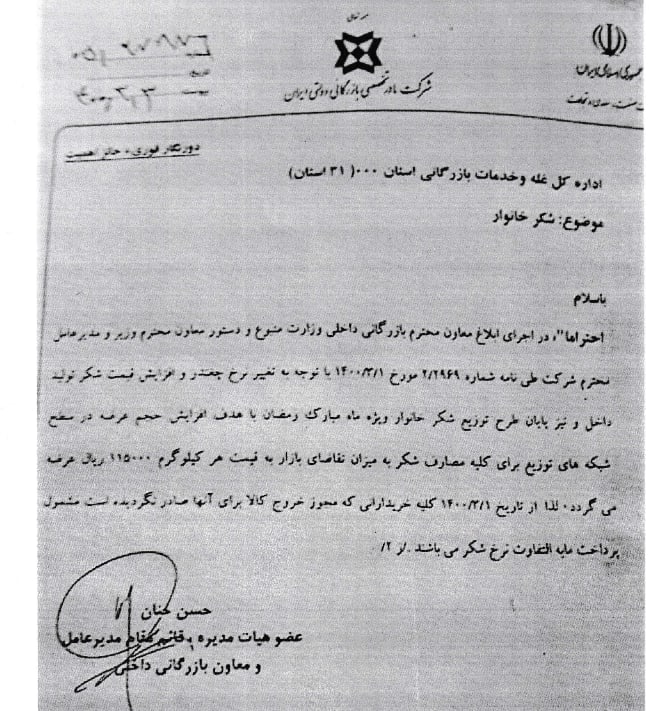 جمهوری اسلامی ایران
شرکت مادر تخصصی بازرگانی دولتی ایران
دورنگار فوری، حائز اهمیت
اداره کل غله وخدمات بازرگانی استان ۰۰۰( ۳۱ استان)
موضوع: شکر خانوار
باسلام
احتراما"، در اجرای ابلاغ معاون محترم بازرگانی داخلی وزارت متبوع و دستور معاون محترم وزیر و مدیرعامل
محترم شرکت طی نامه شماره ۲/۲۹۶۹ مورخ ۱۴۰۰/۳/۱ با توجه به تغییر نرخ چغندر و افزایش قیمت شکر تولید
داخل و نیز پایان طرح توزیع شکر خانوار ویژه ماه مبارک رمضان با هدف افزایش حجم عرضه در سطح
شبکه های توزیع برای کلیه مصارف شکر به میزان تقاضای بازار به قیمت هر کیلوگرم ۱۱۵۰۰۰ ریال عرضه
می گردد، لذا از تاریخ ۱۴۰۰/۳/۱ کلیه خریدارانی که مجوز خروج کالا برای آنها صادر نگردیده است مشمول
پرداخت مابه التفاوت نرخ شکر می باشند ./ز ۲/
حسن حنان
عضو هیات مدیره ، قائم مقام مدیرعامل
و معاون بازرگانی داخلی